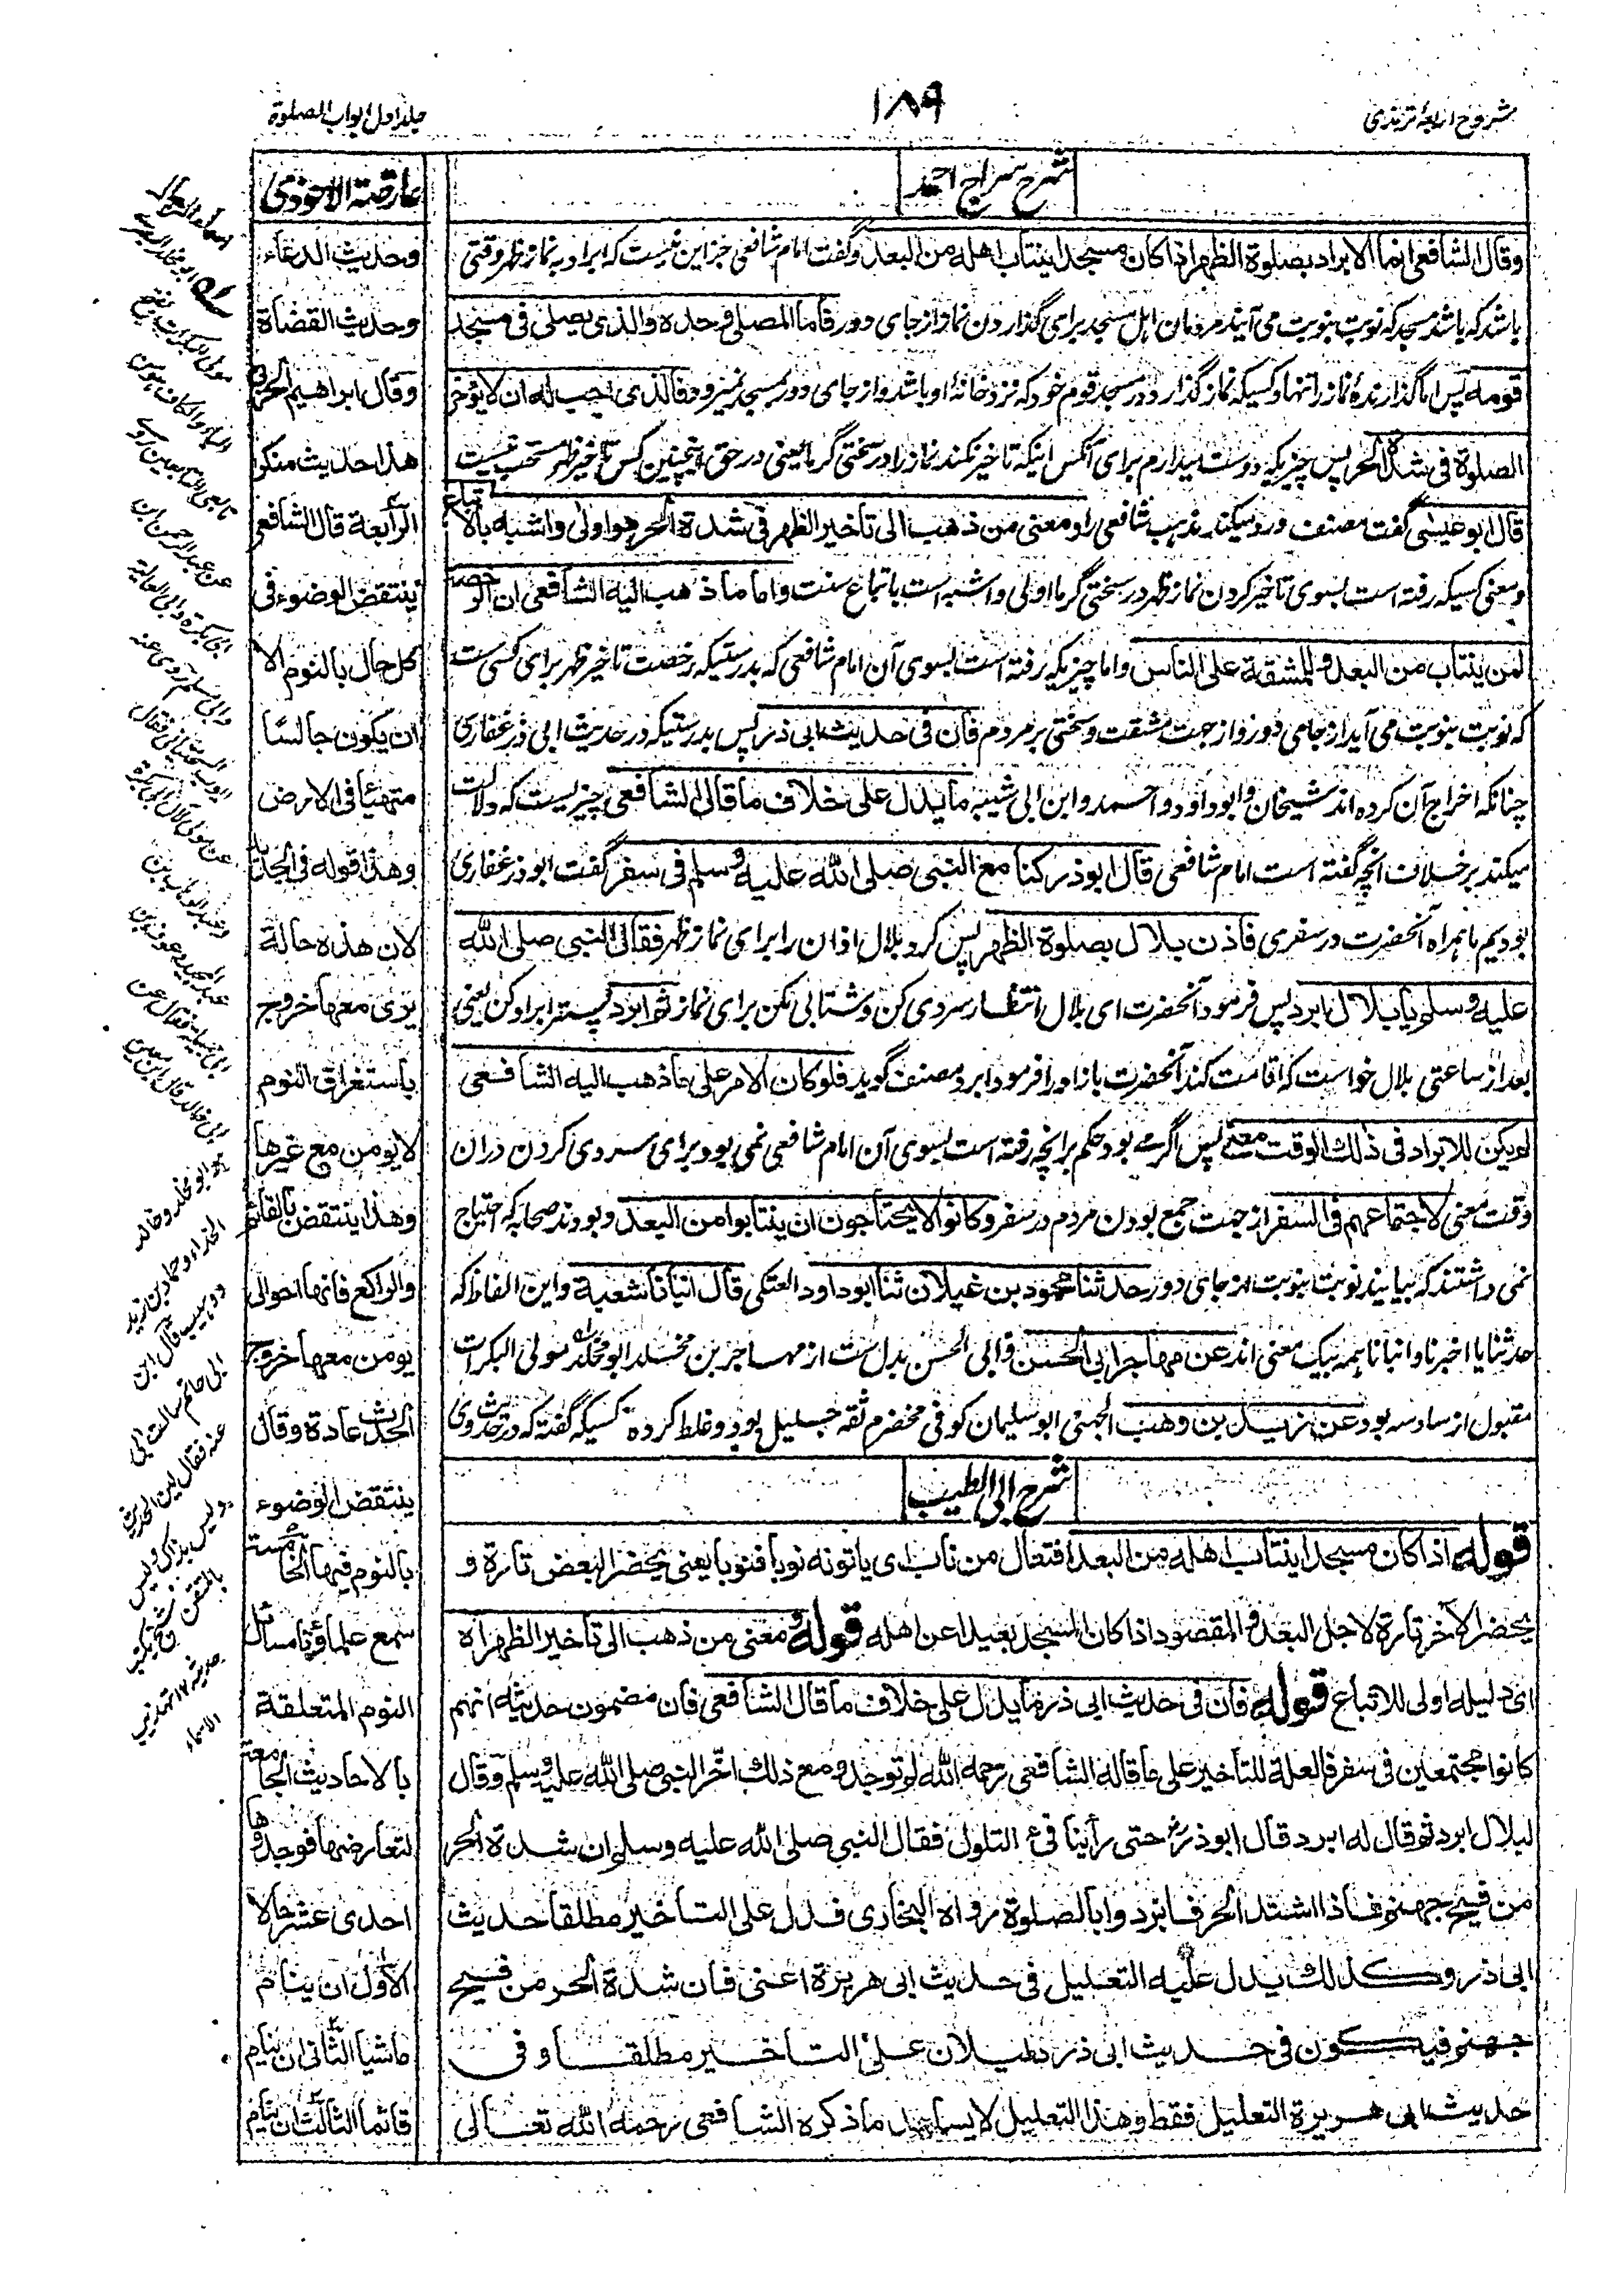 شروح اربعۂ ترمذی
۱۸۹
جلد اول ابواب الصلوة
شرح سراج احمد
وقال الشافعی انما الابراد بصلوة الظهر اذا کان مسجدا ینتاب اهله من البعد وگفت امام شافعی جز این نیست که ابراد به نماز ظهر وقتی
باشد که باشد مسجد که نوبت بنوبت می آیند مردمان اهل مسجد برای گذاردن نماز از جای دور فاما المصلی وحده والذی یصلی فی مسجد
قومه پس اما گذارندهٔ نماز را تنها وکسیکه نماز گذارد در مسجد قوم خود که نزد خانهٔ او باشد و از جای دور بمسجد نمیرود فالذی احب له ان لا یؤخر
الصلوة فی شدة الحر پس چیزیکه دوست میدارم برای آنکس اینکه تاخیر نکند نماز را در سختی گرما یعنی در حق اینچنین کس تاخیر ظهر مستحب نیست
قال ابو عیسی گفت مصنف ورد میکند مذهب شافعی را ومعنی من ذهب الی تاخیر الظهر فی شدة الحر هو اولی واشبه بالاتباع
ومعنی کسیکه رفته است بسوی تاخیر کردن نماز ظهر در سختی گرما اولی واشبه است باتباع سنت واما ما ذهب الیه الشافعی ان الرخصة
لمن ینتاب من البعد والمشقة علی الناس واما چیزیکه رفته است بسوی آن امام شافعی که بدرستیکه رخصت تاخیر ظهر برای کسی ست
که نوبت بنوبت می آید از جای دور واز جهت مشقت وسختی بر مردم فان فی حدیث ابی ذر پس بدرستیکه در حدیث ابی ذر غفاری
چنانکه اخراج آن کرده اند شیخان وابوداود واحمد وابن ابی شیبه ما یدل علی خلاف ما قال الشافعی چیزیست که دلالت
میکند بر خلاف انچه گفته است امام شافعی قال ابوذر کنا مع النبی صلی الله علیه وسلم فی سفر گفت ابوذر غفاری
بودیم ما همراه آنحضرت در سفری فاذن بلال بصلوة الظهر پس کرد بلال اذان را برای نماز ظهر فقال النبی صلی الله
علیه وسلم یا بلال ابرد پس فرمود آنحضرت ای بلال انتظار سردی کن وشتابی مکن برای نماز ثم ابرد پستر ابراد کن یعنی
بعد از ساعتی بلال خواست که اقامت کند آنحضرت باز او را فرمود ابرد ومصنف گوید فلو کان الامر علی ما ذهب الیه الشافعی
لم یکن للابراد فی ذلک الوقت معنی پس اگر می بود حکم بر انچه رفته است بسوی آن امام شافعی نمی بود برای سردی کردن دران
وقت معنی لاجتماعهم فی السفر از جهت جمع بودن مردم در سفر وکانوا لا یحتاجون ان ینتابوا من البعد وبودند صحابه که احتیاج
نمی داشتند که بیایند نوبت بنوبت از جای دور حدثنا محمود بن غیلان ثنا ابوداود العتکی قال انبانا شعبة واین الفاظ که
حدثنا یا اخبرنا وانبانا همه بیک معنی اند عن مهاجر ابی الحسن وابی الحسن بدل ست از مهاجر بن مخلد ابو مخلد مولی البکرات
مقبول از سادسه بود عن زید بن وهب الجهنی ابو سلیمان کوفی مخضرم ثقه جلیل بود وغلط کرده کسیکه گفته که در حدیث وی
شرح ابی الطیب
قوله اذا کان مسجدا ینتاب اهله من البعد افتعال من ناب ای یاتونه نوبا فنوبا یعنی یحضر البعض تارة و
یحضر الآخر تارة لاجل البعد والمقصود اذا کان المسجد بعیدا عن اهله قوله ومعنی من ذهب الی تاخیر الظهر اه
ای دلیله اولی للاتباع قوله فان فی حدیث ابی ذر ما یدل علی خلاف ما قال الشافعی فان مضمون حدیثه انهم
کانوا مجتمعین فی سفر فالعلة للتأخیر علی ما قاله الشافعی رحمه الله لم توجد ومع ذلک اخر النبی صلی الله علیه وسلم وقال
لبلال ابرد ثم قال له ابرد قال ابوذر حتی رأینا فیء التلول فقال النبی صلی الله علیه وسلم ان شدة الحر
من فیح جهنم فاذا اشتد الحر فابردوا بالصلوة رواه البخاری فدل علی التاخیر مطلقا حدیث
ابی ذر وکذلک یدل علیه التعلیل فی حدیث ابی هریرة اعنی فان شدة الحر من فیح
جهنم فیکون فی حدیث ابی ذر دلیلان علی التاخیر مطلقا وفی
حدیث ابی هریرة التعلیل فقط وهذا التعلیل لا یساعد ما ذکره الشافعی رحمه الله تعالی
عارضة الاحوذی
وحدیث الدعاء
وحدیث القضاة
وقال ابراهیم الحربی
هذا حدیث منکر
الرابعة قال الشافعی
ینتقض الوضوء فی
کل حال بالنوم الا
ان یکون جالسا
متهیئا فی الارض
وهذا قوله فی الجدید
لان هذه حالة
یری معها خروج
باستغراق النوم
لا یومن مع غیرها
وهذا ینتقض بالقائم
والراکع فانها احوال
یومن معها خروج
الحدث عادة وقال
ینتقض الوضوء
بالنوم فیها الخامسة
سمع علماؤنا مسائل
النوم المتعلقة
بالاحادیث الجامعة
لتعارضها فوجدوها
احدی عشر حالا
الاول ان ینام
ماشیا الثانی ان ینام
قائما الثالث ان ینام
هو ابو مخلد وخالد
الحذاء وحماد بن زید
ووهیب قال ابن
ابی حاتم سالت ابی
عنه فقال لین الحدیث
لیس بذاک ولیس